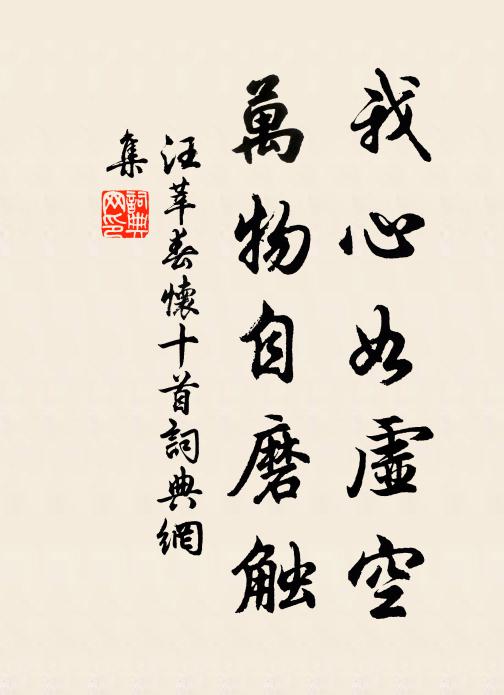 我心如虛空
萬物自磨触
汪莘春懷十首詞典網
集
詞典网印